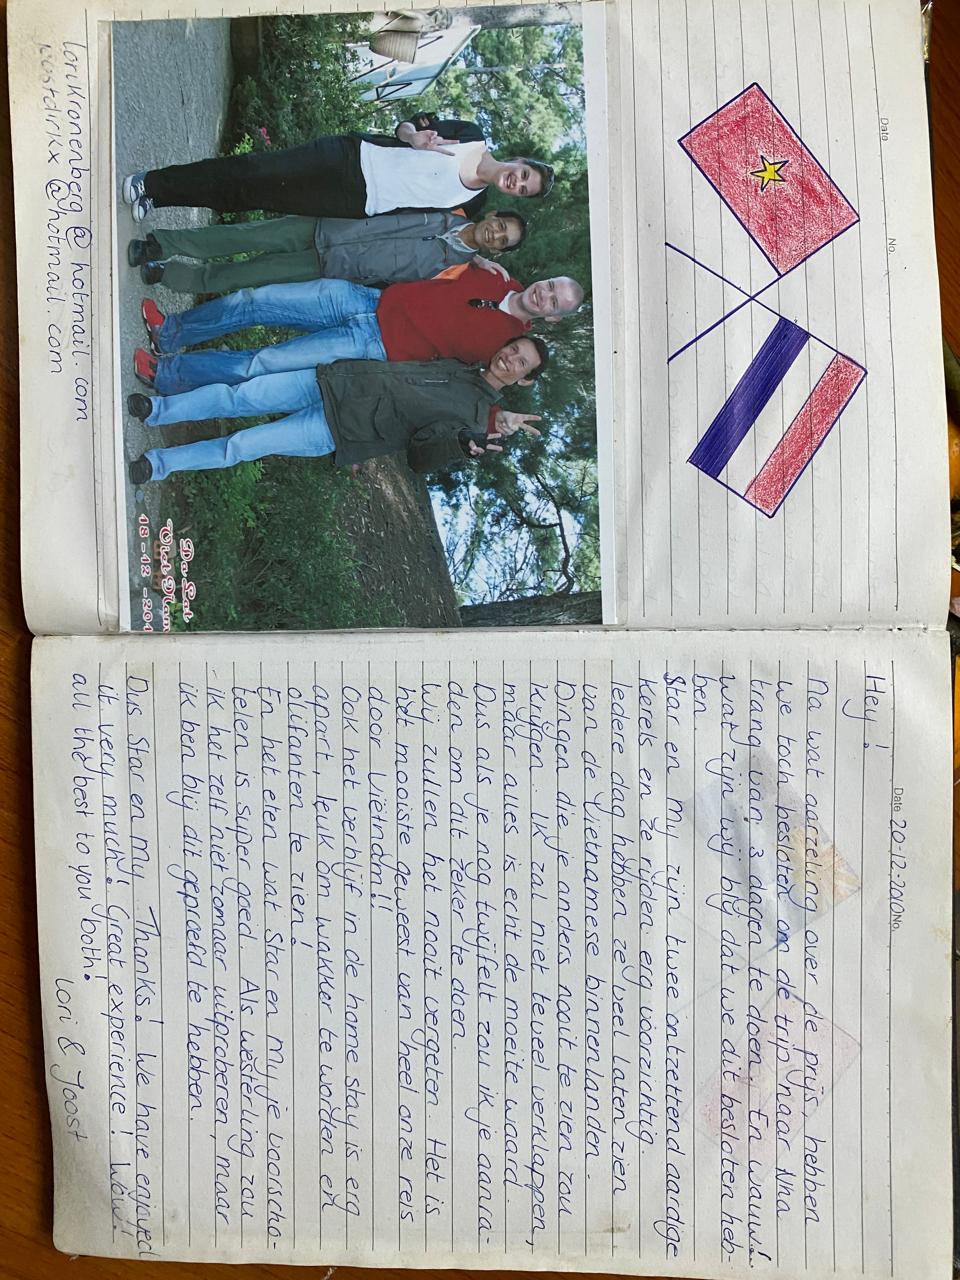 Date
No.
Da Lat
Viet Nam
18-12-201
lorikronenberg@hotmail.com
joostdirkx@hotmail.com
Date 20-12-2010 No.
Hey!
Na wat aarzeling over de prijs, hebben
we toch besloten om de trip naar Nha
trang van 3 dagen te doen. En wauw..
wat zijn wij blij dat we dit besloten heb-
ben.
Star en my zijn twee ontzettend aardige
kerels en ze rijden erg voorzichtig.
Iedere dag hebben ze veel laten zien
van de Vietnamese binnenlanden.
Dingen die je anders nooit te zien zou
krijgen. Ik zal niet teveel verklappen,
maar alles is echt de moeite waard.
Dus als je nog twijfelt zou ik je aanra-
den om dit zeker te doen.
Wij zullen het nooit vergeten. Het is
hot mooiste geweest van heel onze reis
door Viëtnam!!
Ook het verblijf in de home stay is erg
apart, leuk om wakker te worden en
olifanten te zien!
En het eten wat Star en My je voorscho-
telen is super goed. Als westerling zou
ik het zelf niet zomaar uitproberen, maar
ik ben blij dit geproefd te hebben.
Dus Star en My... Thanks! We have enjoyed
it very much! Great experience! Wow!
all the best to you both!
Lori & Joost